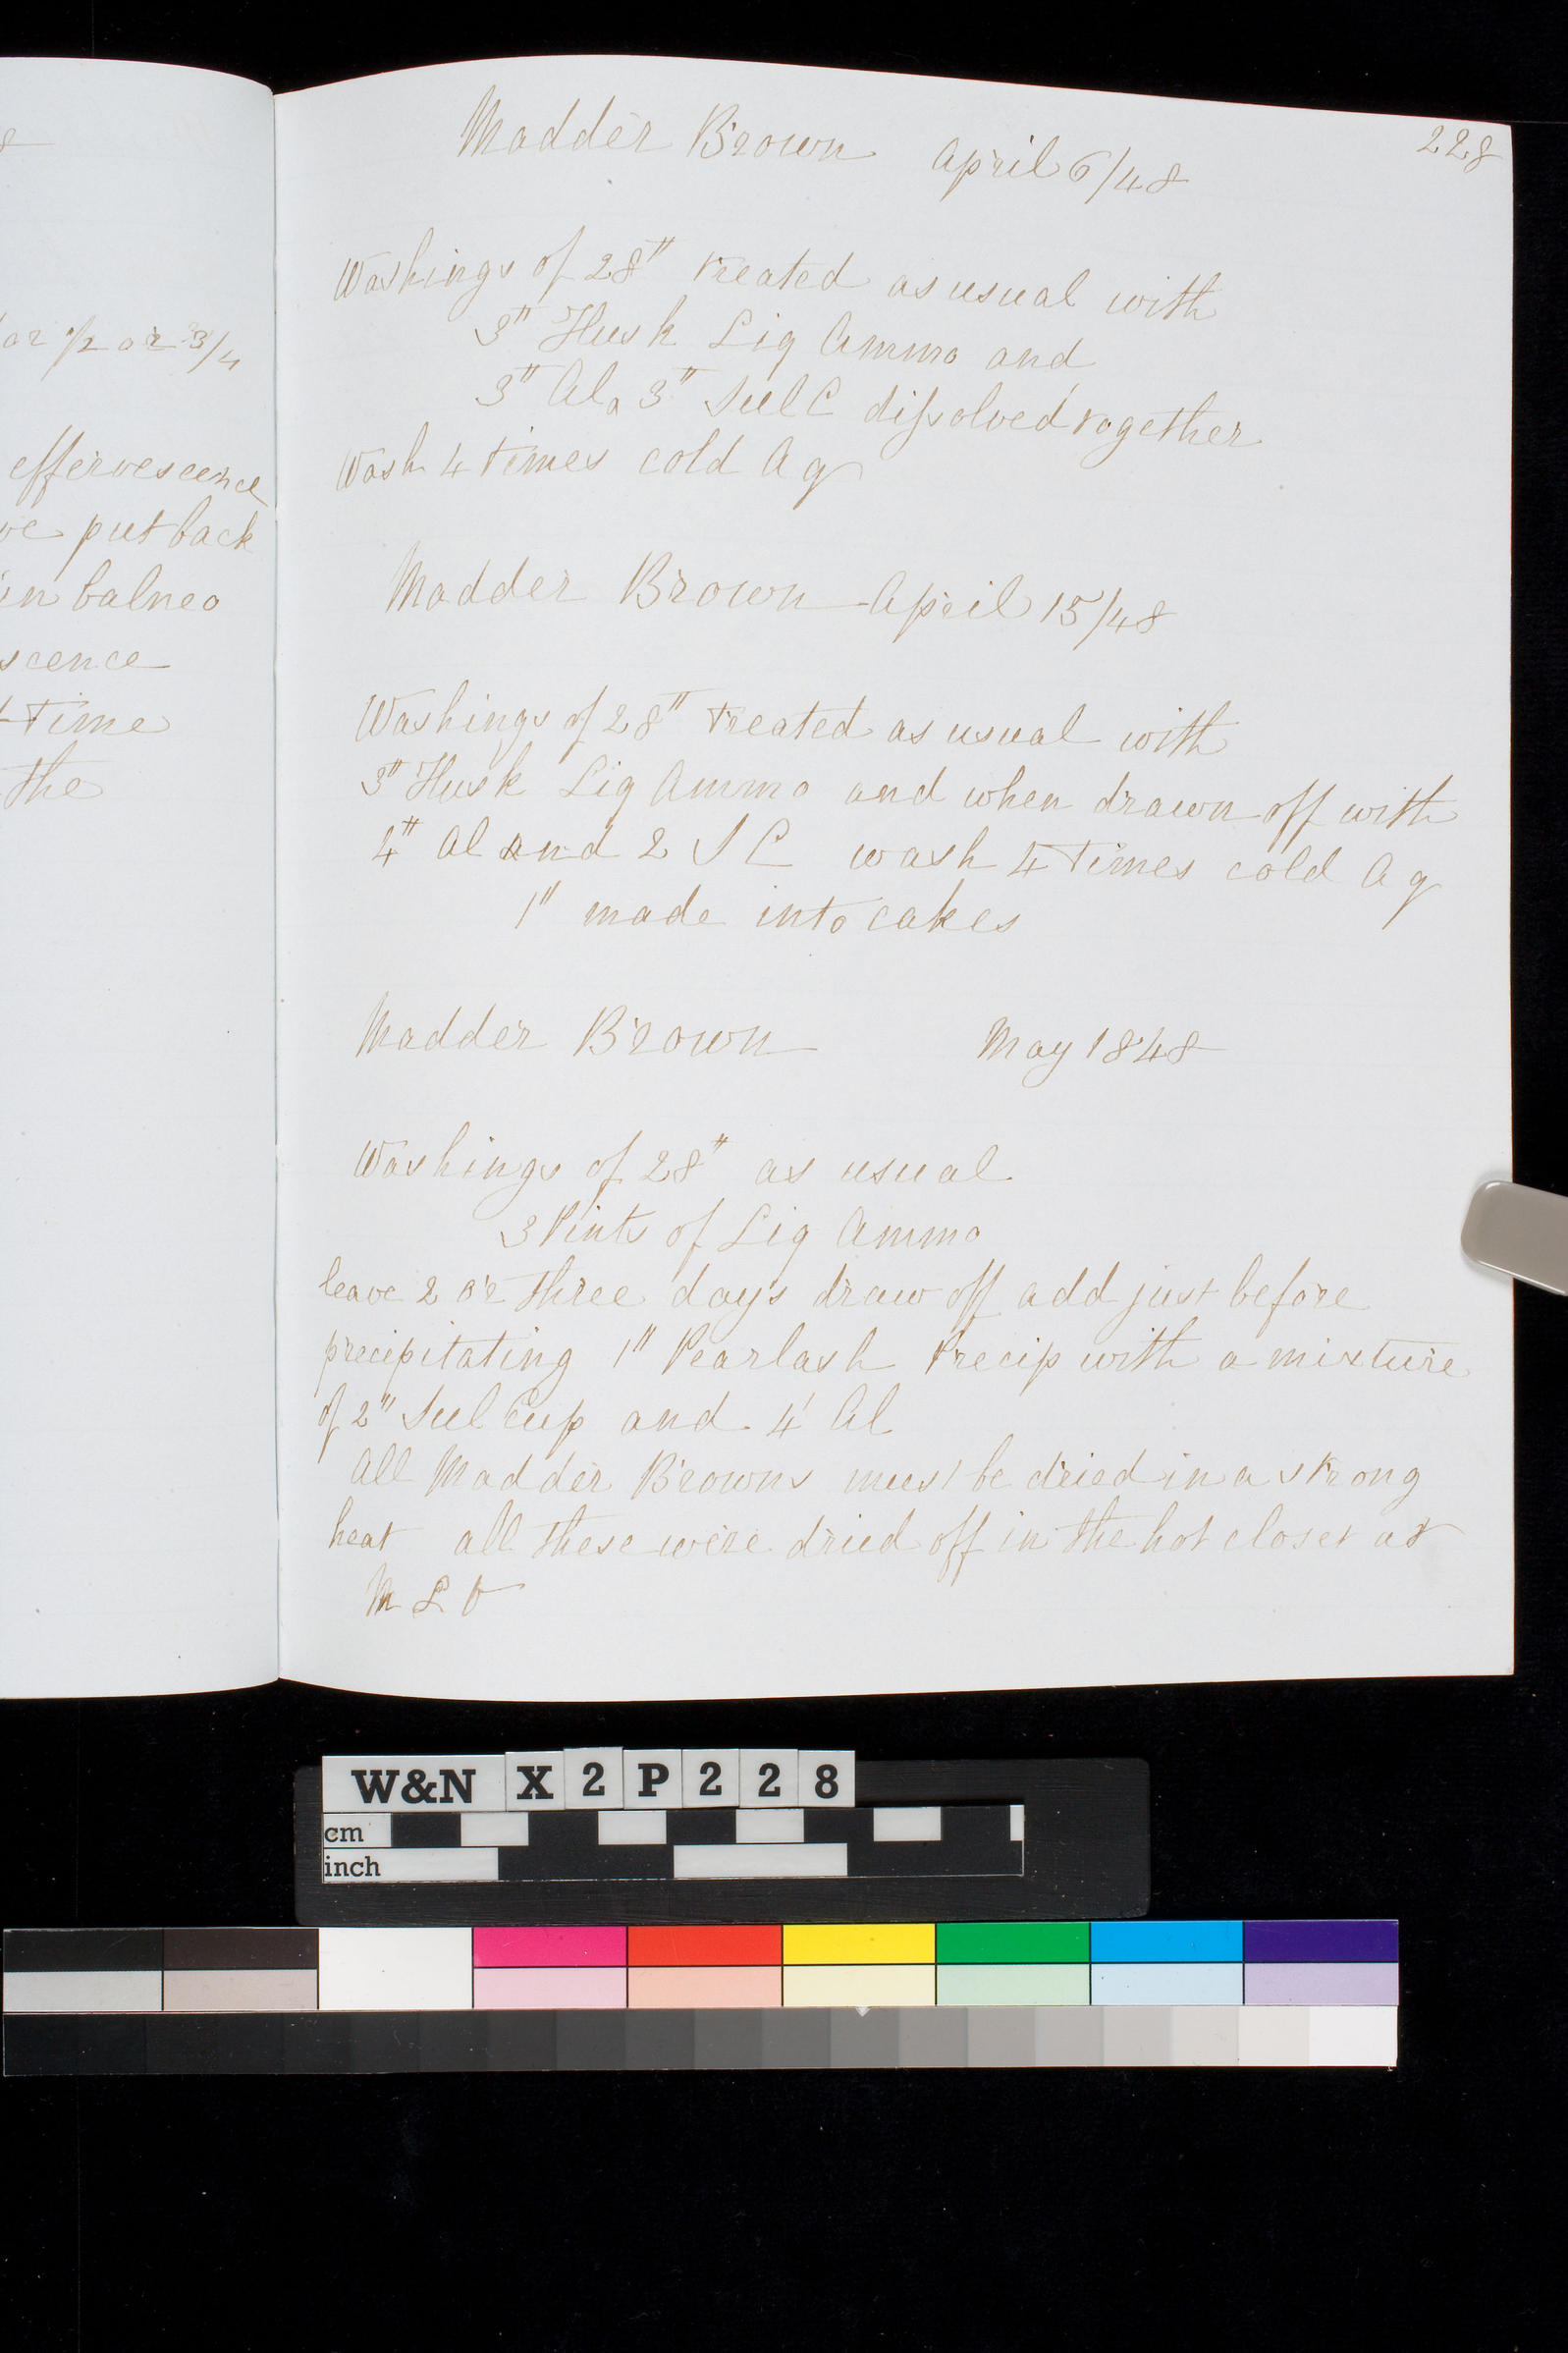 8
or 1/2 or 3/4
effervescence
put back
in balneo
scence
time
the
228
Madder Brown April 6/48
Washings of 28" treated as usual with
3" Husk Liq Ammo and
3" Al, 3" Sul C difsolved together
Wash 4 times cold Aq
Madder Brown April 15/48
Washings of 28" treated as usual with
3" Husk Liq Ammo and when drawn off with
4" Al and 2 S C wash 4 times cold Aq
1" made into cakes
Madder Brown May 1848
Washings of 28" as usual
3 Pints of Liq Ammo
leave 2 or three days draw off add just before
precipitating 1" Pearlash Precip with a mixture
of 2" Sul Cup and 4' Al
All Madder Browns must be dried in a strong
heat all these were dried off in the hot closet at
W&N X2P228
cm
inch